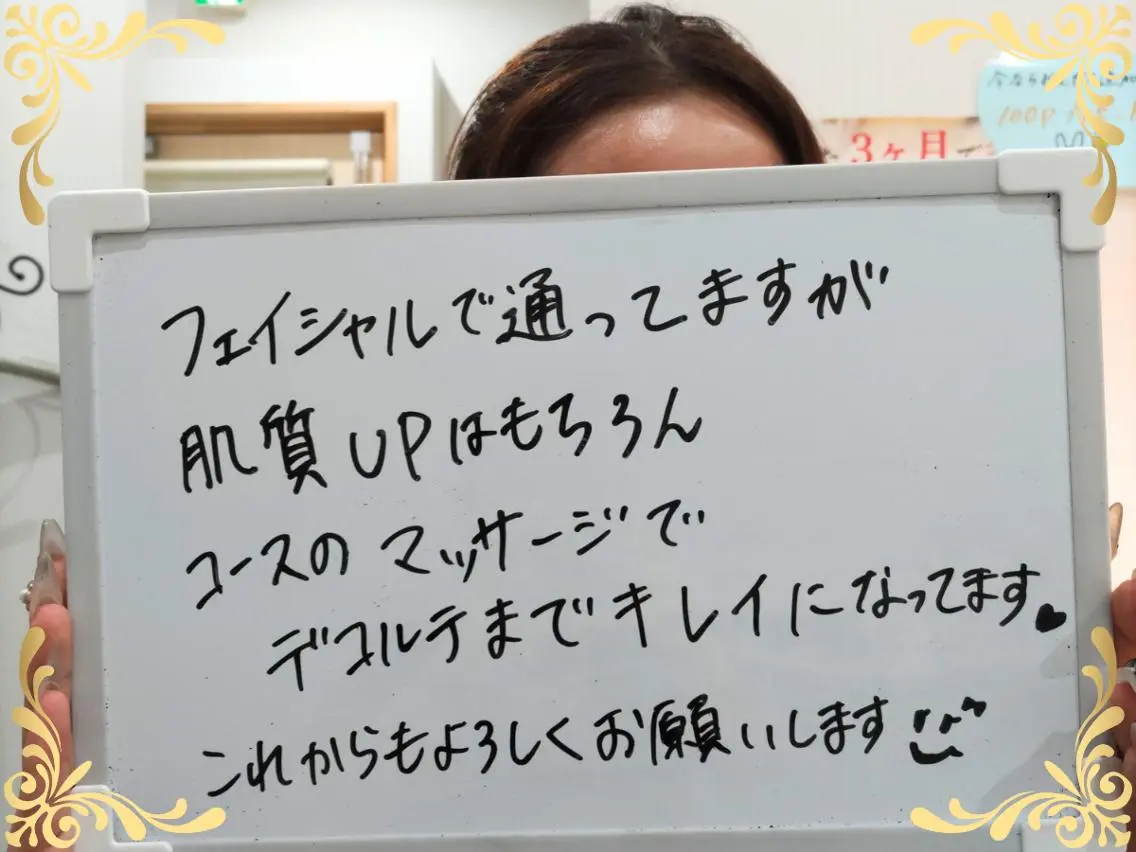 フェイシャルで通ってますが
肌質UPはもちろん
コースのマッサージで
デコルテまでキレイになってます♥
これからもよろしくお願いします
3ヶ月で
今なら
100P